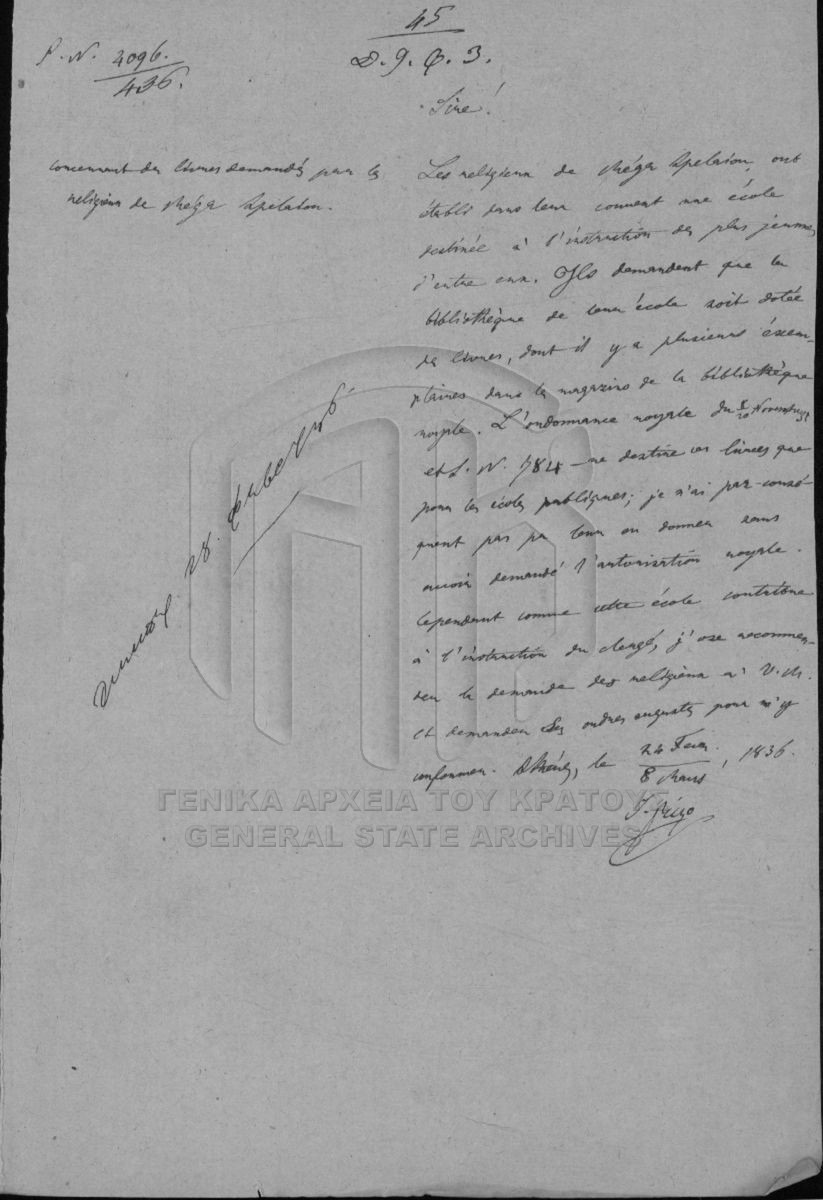 45
D. 9. Q. 3.
P. N. 4096.
436.
Sire!
concernant des livres demandés par les
religieux de Méga Spelaion.
Les religieux de Méga Spelaion, ont
établi dans leur couvent une école
destinée à l'instruction des plus jeunes
d'entre eux. Ils demandent que la
bibliothèque de leur école soit dotée
de livres, dont il y a plusieurs éxem-
plaires dans les magazins de la bibliothèque
royale. L'ordonnance royale du Novembre
et S. N. 784 ne destine ces livres que
pour les écoles publiques; je n'ai par-consé-
quent pas pu leur en donner sans
avoir demandé l'autorisation royale.
Cependant comme cette école contribue
à l'instruction du clergé, j'ose recomman-
der la demande des religieux à V. M.
et demander Ses ordres augustes pour m'y
conformer. Athènes, le 24 Fevr. / 8 Mars, 1836.
J. Rizo
28.
ΓΕΝΙΚΑ ΑΡΧΕΙΑ ΤΟΥ ΚΡΑΤΟΥΣ
GENERAL STATE ARCHIVES